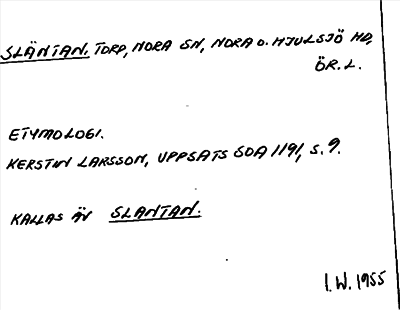 SLÄNTAN. TORP, NORA SN, NORA O. HJULSJÖ HD,
ÖR. L.
ETYMOLOGI.
KERSTIN LARSSON, UPPSATS SOA 1191, S. 9.
KALLAS ÄV SLANTAN.
I.W. 1955